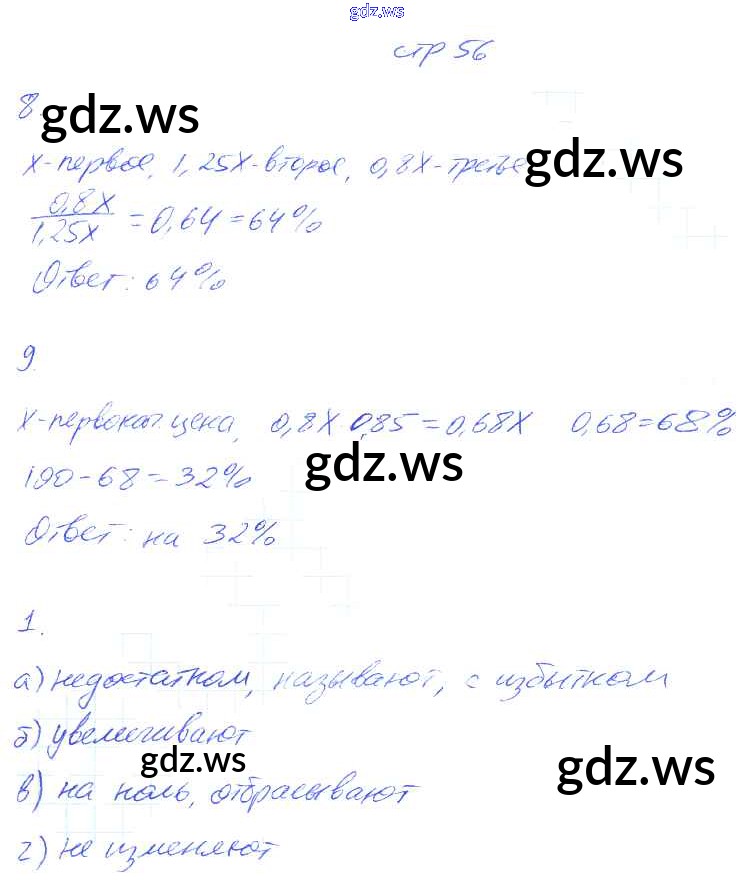 gdz.ws
стр 56
8.
gdz.ws
х-первое, 1,25х-второе, 0,8х-третье
gdz.ws
0,8х
1,25х = 0,64 = 64%
Ответ: 64%
9.
х-первонач. цена, 0,8х·0,85=0,68х 0,68=68%
gdz.ws
100-68=32%
Ответ: на 32%
1.
а) недостатком, называют, с избытком
б) увеличивают
gdz.ws
gdz.ws
в) на ноль, отбрасывают
г) не изменяют